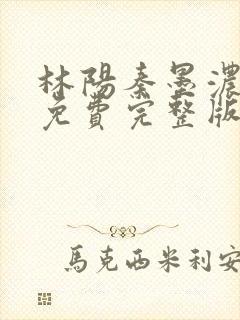 林陽秦墨濃
免費完整版
馬克西米利安